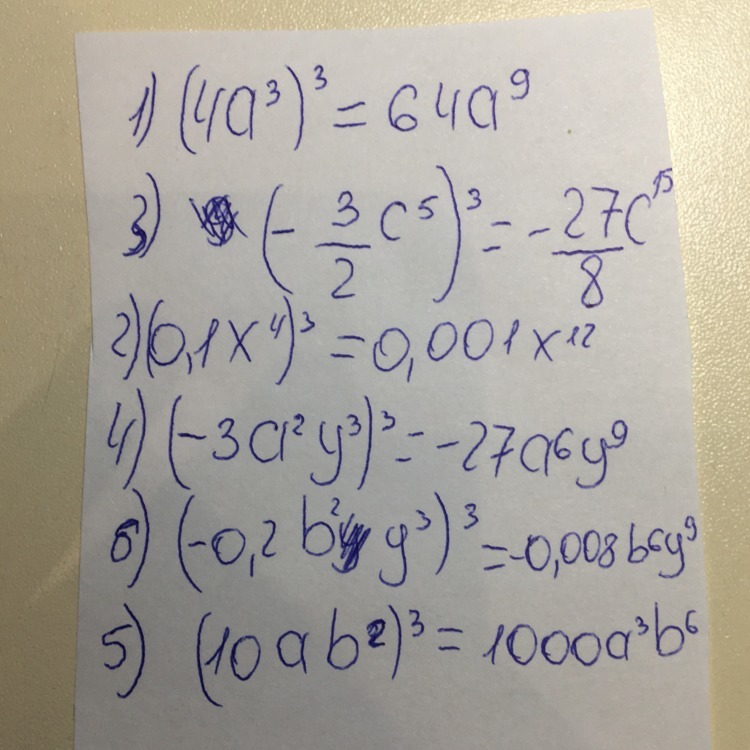 1) (4a³)³ = 64a⁹
3) (- 3/2 c⁵)³ = - 27/8 c¹⁵
2) (0,1x⁴)³ = 0,001x¹²
4) (-3a²y³)³ = -27a⁶y⁹
6) (-0,2b²y³)³ = -0,008b⁶y⁹
5) (10ab²)³ = 1000a³b⁶